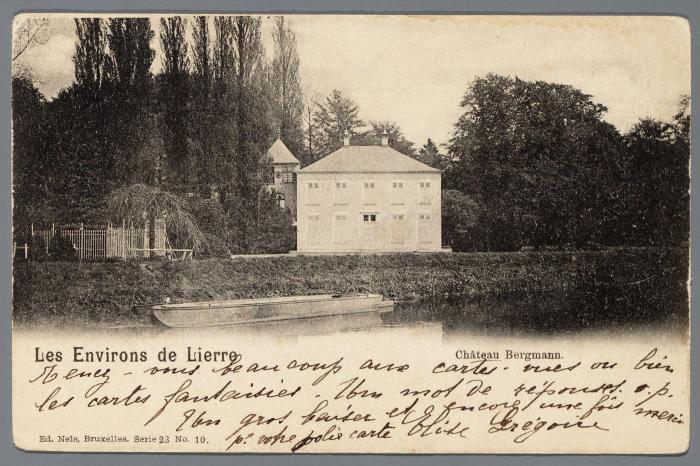 Les Environs de Lierre
Château Bergmann.
Tenez-vous beaucoup aux cartes-vues ou bien
les cartes fantaisies. Un mot de réponse s.v.p.
Un gros baiser et encore une fois merci
pr votre jolie carte Elise Grégoire
Ed. Nels, Bruxelles. Serie 23 No. 10.